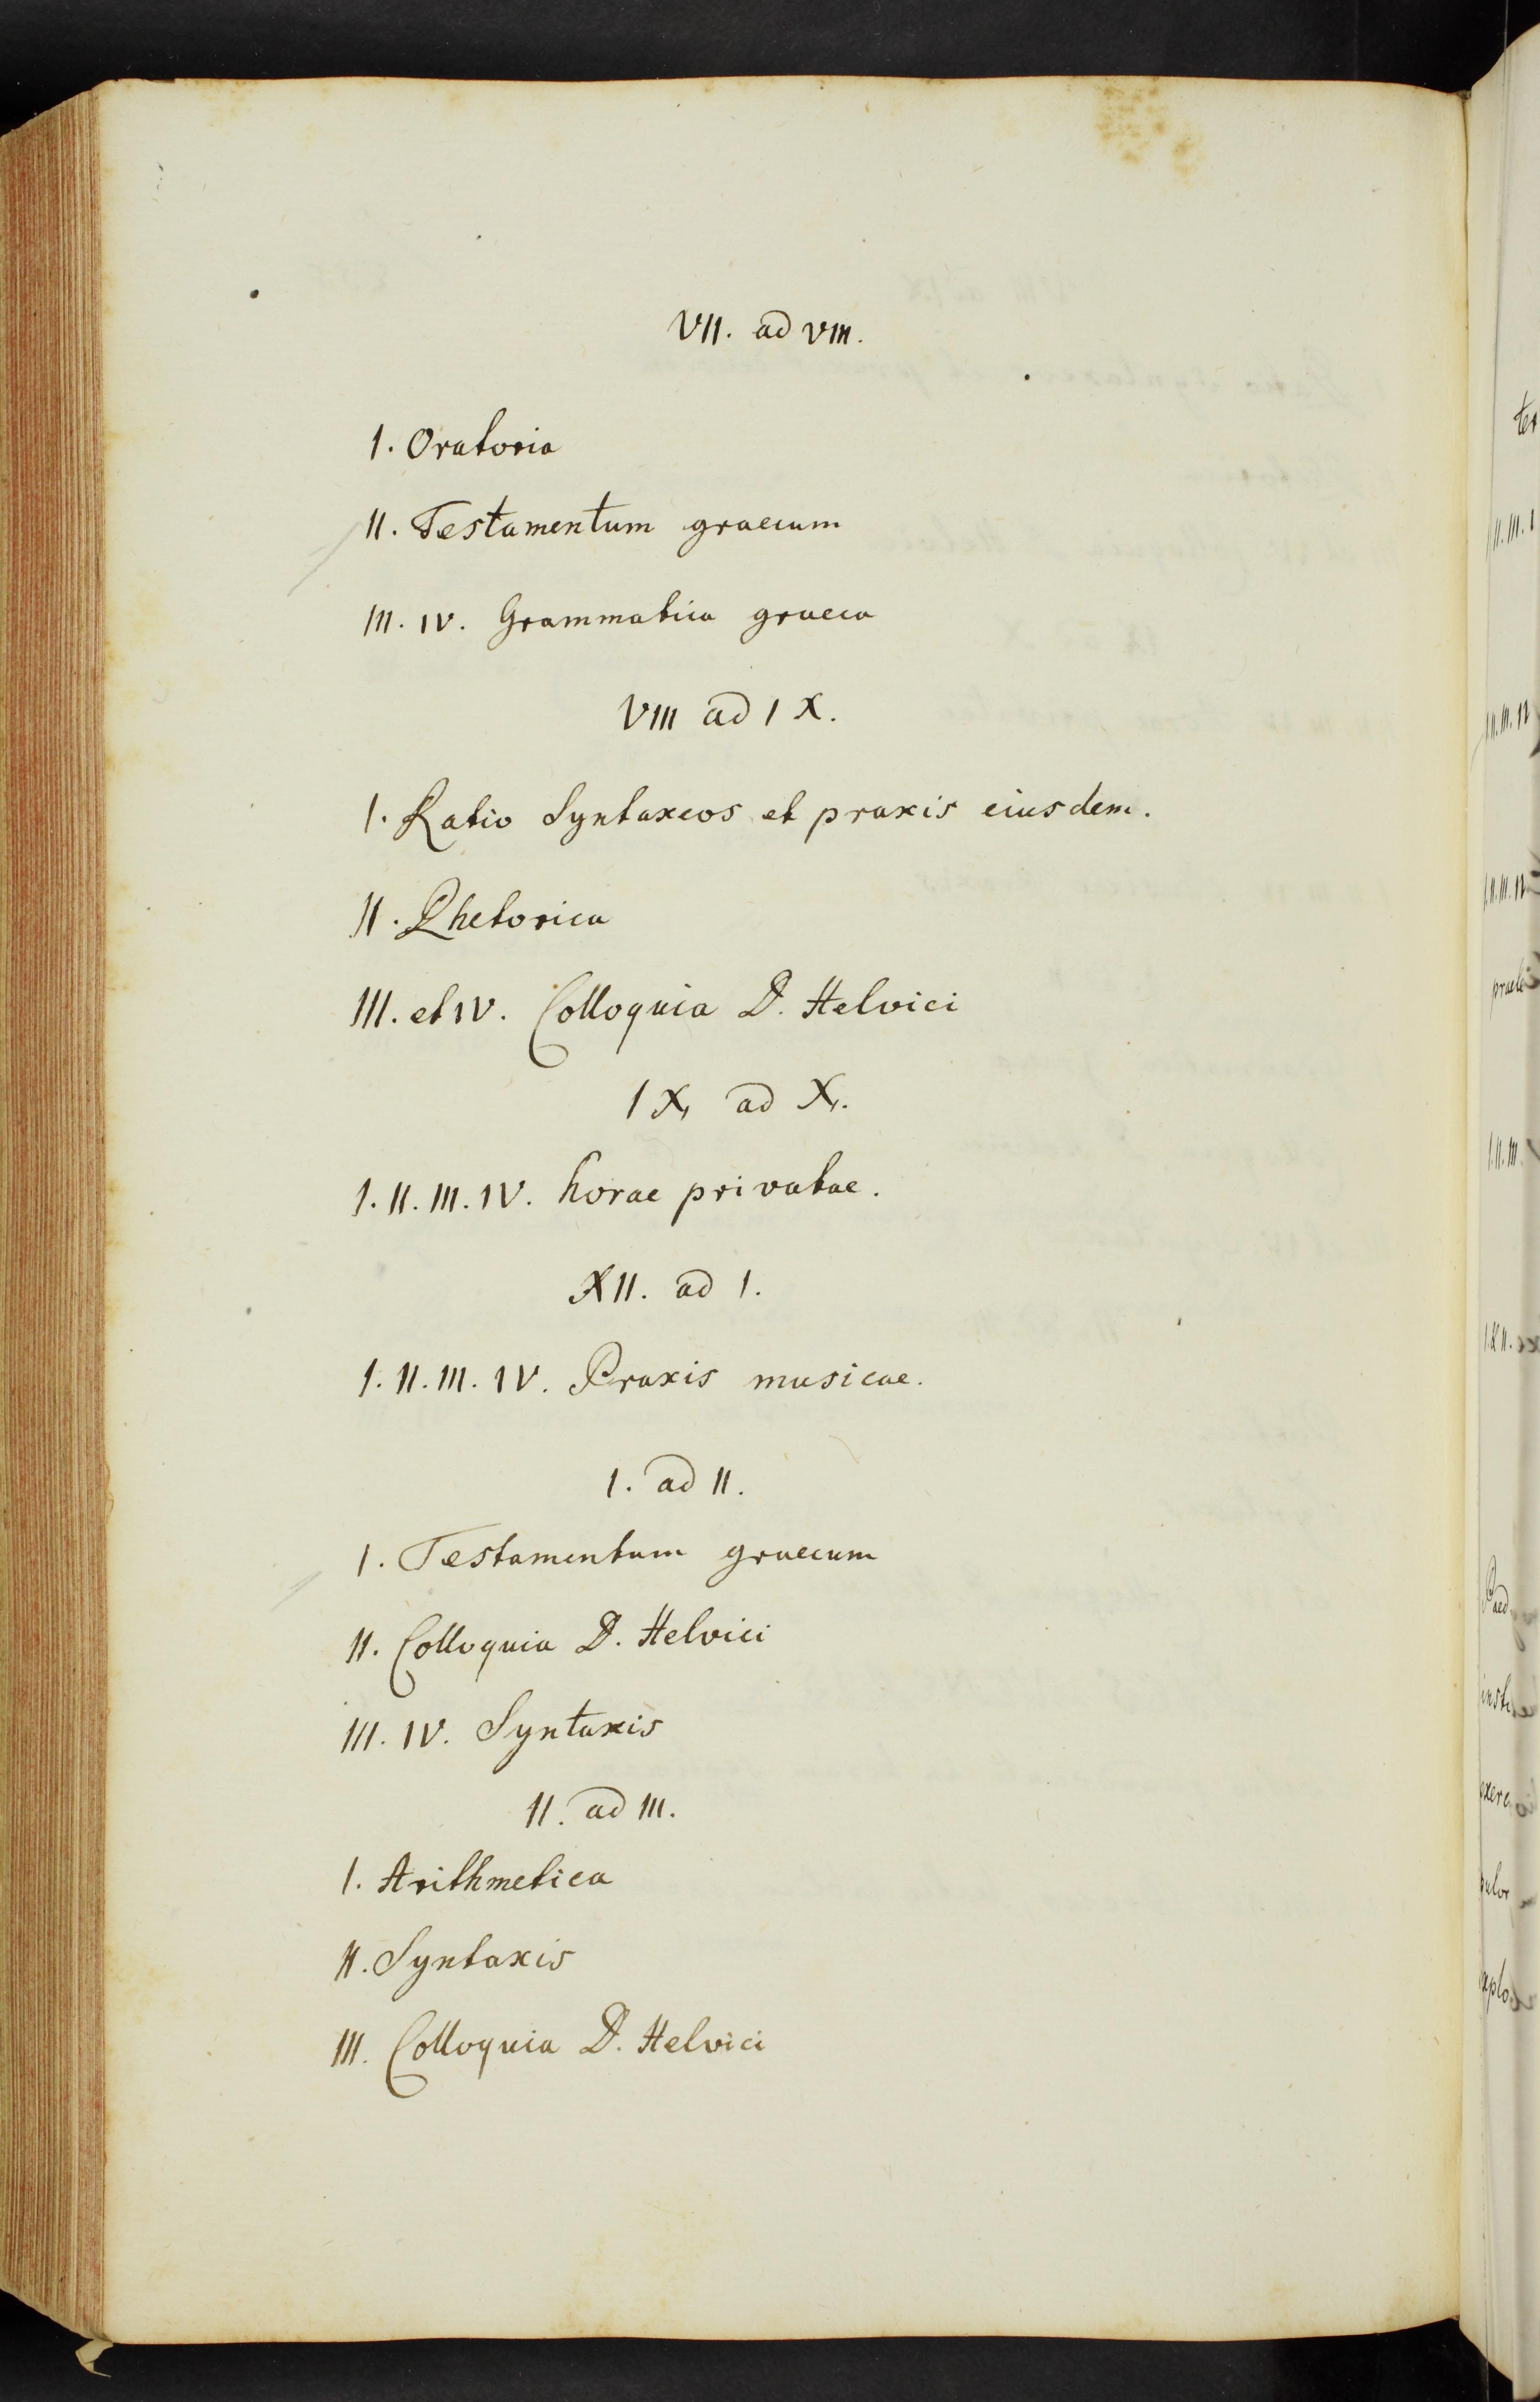 VII. ad VIII.
I. Oratoria
II. Testamentum graecum
III. IV. Grammatica graeca
VIII ad IX.
I. Ratio Syntaxeos et praxis eiusdem.
II. Rhetorica
III. et IV. Colloquia D. Helvici
IX, ad X,.
I. II. III. IV. horae privatae.
XII. ad I.
I. II. III. IV. Praxis musicae.
I. ad II.
I. Testamentum graecum
II. Colloquia D. Helvici
III. IV. Syntaxis
II. ad III.
I. Arithmetica
II. Syntaxis
III. Colloquia D. Helvici